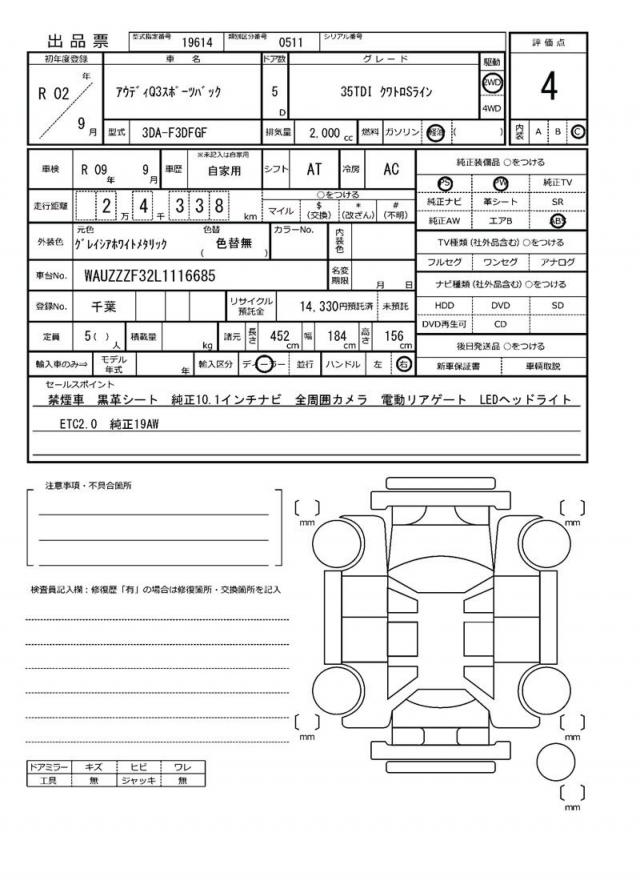 出品票 型式指定番号 19614 類別区分番号 0511 シリアル番号
評価点
初年度登録 車 名 ドア数 グレード 駆動
R 02 年 9 月 ｱｳﾃﾞｨQ3ｽﾎﾟｰﾂﾊﾞｯｸ 5 D 35TDI ｸﾜﾄﾛSﾗｲﾝ 2WD 4WD
4
型式 3DA-F3DFGF 排気量 2,000 cc 燃料 ガソリン 軽油 ( )
内装 A B C
車検 R 09 年 9 月 車歴 ※未記入は自家用 自家用 シフト AT 冷房 AC
走行距離 2 万 4 千 3 3 8 km
○をつける
マイル $ (交換) * (改ざん) # (不明)
外装色 元色 ｸﾞﾚｲｼｱﾎﾜｲﾄﾒﾀﾘｯｸ 色替 ( 色替無 ) カラーNo. 内装色
車台No. WAUZZZF32L1116685 名変期限 月 日
登録No. 千葉 リサイクル預託金 14,330円預託済 未預託
定員 5 ( ) 人 積載量 kg 諸元 長さ 452 cm 幅 184 cm 高さ 156 cm
輸入車のみ⇒ モデル年式 年 輸入区分 ディーラー 並行 ハンドル 左 右
純正装備品 ○をつける
PS PW 純正TV
純正ナビ 革シート SR
純正AW エアB ABS
TV種類 (社外品含む) ○をつける
フルセグ ワンセグ アナログ
ナビ種類 (社外品含む) ○をつける
HDD DVD SD
DVD再生可 CD
後日発送品 ○をつける
新車保証書 車輌取説
セールスポイント
禁煙車 黒革シート 純正10.1インチナビ 全周囲カメラ 電動リアゲート LEDヘッドライト
ETC2.0 純正19AW
注意事項・不具合箇所
検査員記入欄：修復歴「有」の場合は修復箇所・交換箇所を記入
mm
mm
mm
mm
mm
ドアミラー キズ ヒビ ワレ
工具 無 ジャッキ 無